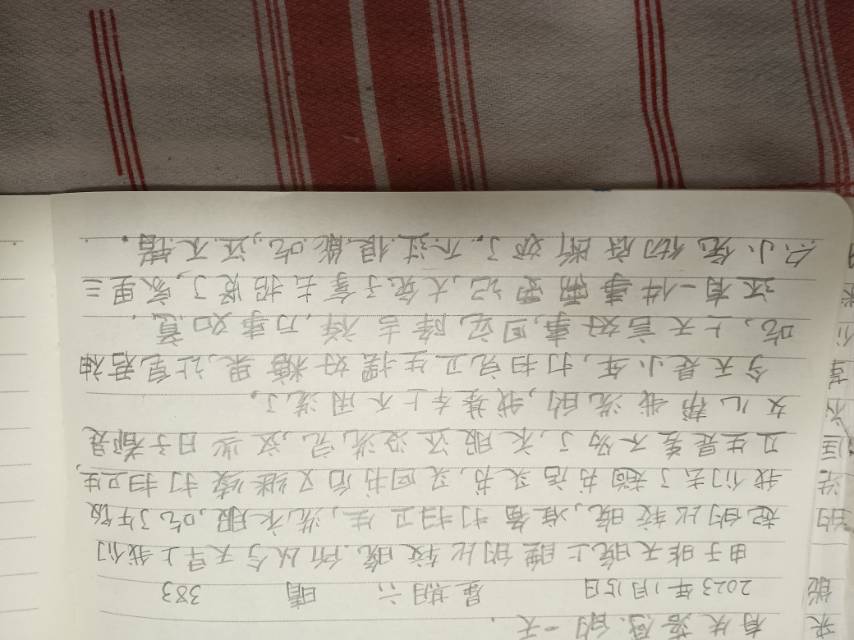 有失落感的一天。
2023年1月15日 星期六 晴 383
由于昨天晚上睡的比较晚,所以今天早上我们
起的比较晚,准备打扫卫生,洗衣服,吃了午饭
我们去了趟书店买书,买回书后又继续打扫卫生,
卫生是差不多了,衣服还没洗完,这些日子都是
女儿帮我洗的,我基本上不用洗了。
今天是小年,打扫完卫生摆好糖果,让皂君神
吃,上天言好事,回宫降吉祥,万事如意。
还有一件事需要记,大兔子拿去了,家里三
只小兔彻底断奶了,不过很能吃,还不错。